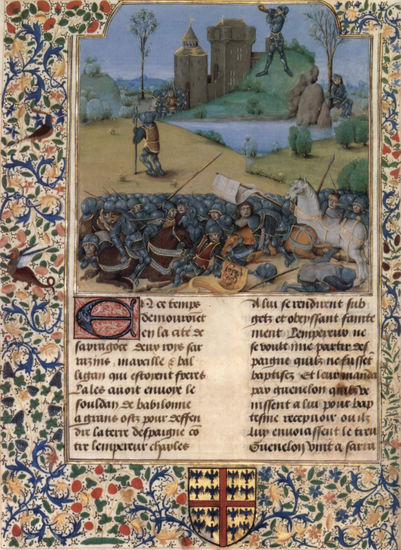 En ce temps
demouroiēt
en la cite de
sarragoce deux roys sar
razins, marcille & bal
ligan qui estoient freres
Lales auoit enuoye le
souldan de babilonne
a grans ostz pour deffen
dre la terre despaigne cō
tre lempereur charles
A lui se rendirent sub
getz et obeyssant fainte
ment Lempereur ne
se voult mie partir des
paigne quilz ne fussēt
baptisez Et leur manda
par guenelon quilz ve
nissent a lui pour bap
tesme recepuoir ou quilz
luy enuoiassent le treu
Guenelon vint a sarra